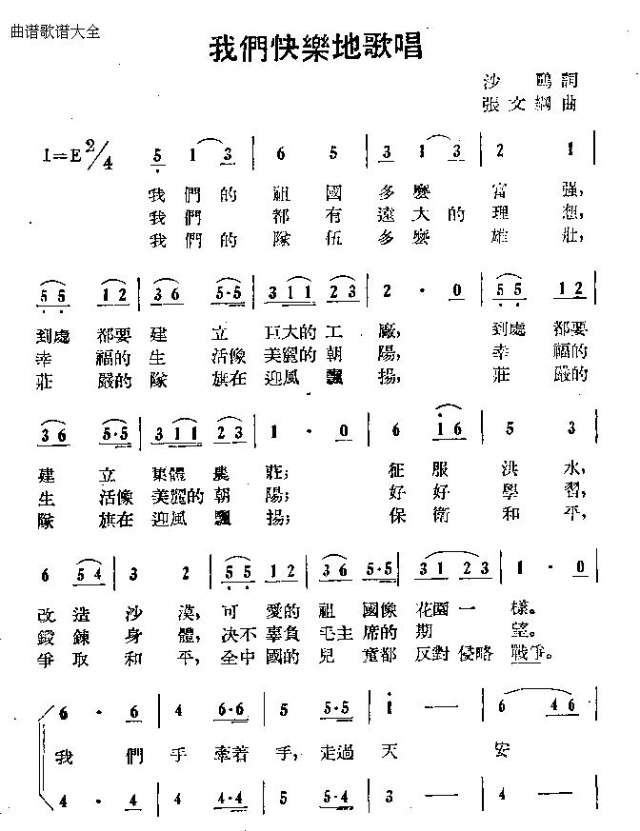 曲谱歌谱大全
我們快樂地歌唱
沙鷗詞
張文綱曲
1=E 2/4 5 1 3 | 6 5 | 3 1 3 | 2 1 |
我們的祖國多麽富强,
我們都有遠大的理想,
我們的隊伍多麽雄壯,
5 5 1 2 | 3 6 5·5 | 3 1 1 2 3 | 2 · 0 | 5 5 1 2 |
到處都要建立巨大的工廠,到處都要
幸福的生活像美麗的朝陽,幸福的
莊嚴的隊旗在迎風飄揚,莊嚴的
3 6 5·5 | 3 1 1 2 3 | 1 · 0 | 6 1 6 | 5 3 |
建立集體農莊;征服洪水,
生活像美麗的朝陽;好好學習,
隊旗在迎風飄揚;保衛和平,
6 5 4 | 3 2 | 5 5 1 2 | 3 6 5·5 | 3 1 2 3 | 1 · 0
改造沙漠,可愛的祖國像花園一樣。
鍛鍊身體,决不辜負毛主席的期望。
爭取和平,全中國的兒童都反對侵略戰爭。
6 · 6 | 4 6·6 | 5 5·5 | 1 — | 6 4 6 |
我們手牽着手,走過天安
4 · 4 | 4 4·4 | 5 5·4 | 3 — | 4 — |